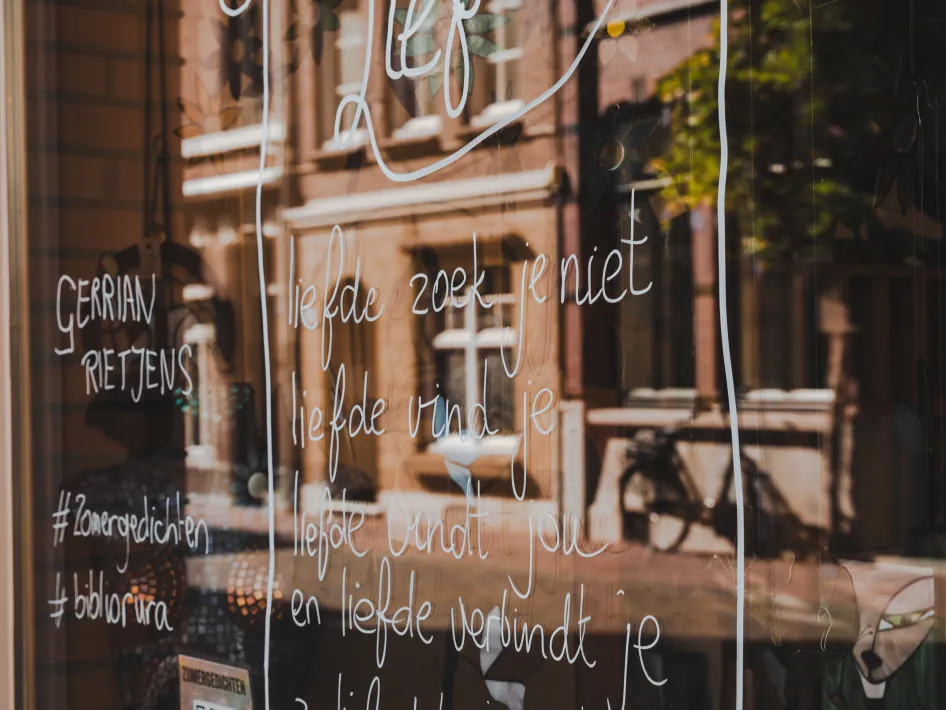 Lief
liefde zoek je niet
liefde vind je
liefde vindt jou
en liefde verbindt je
GERRIAN
RIETJENS
#Zomergedichten
#bibliorura
ZOMERGEDICHTEN